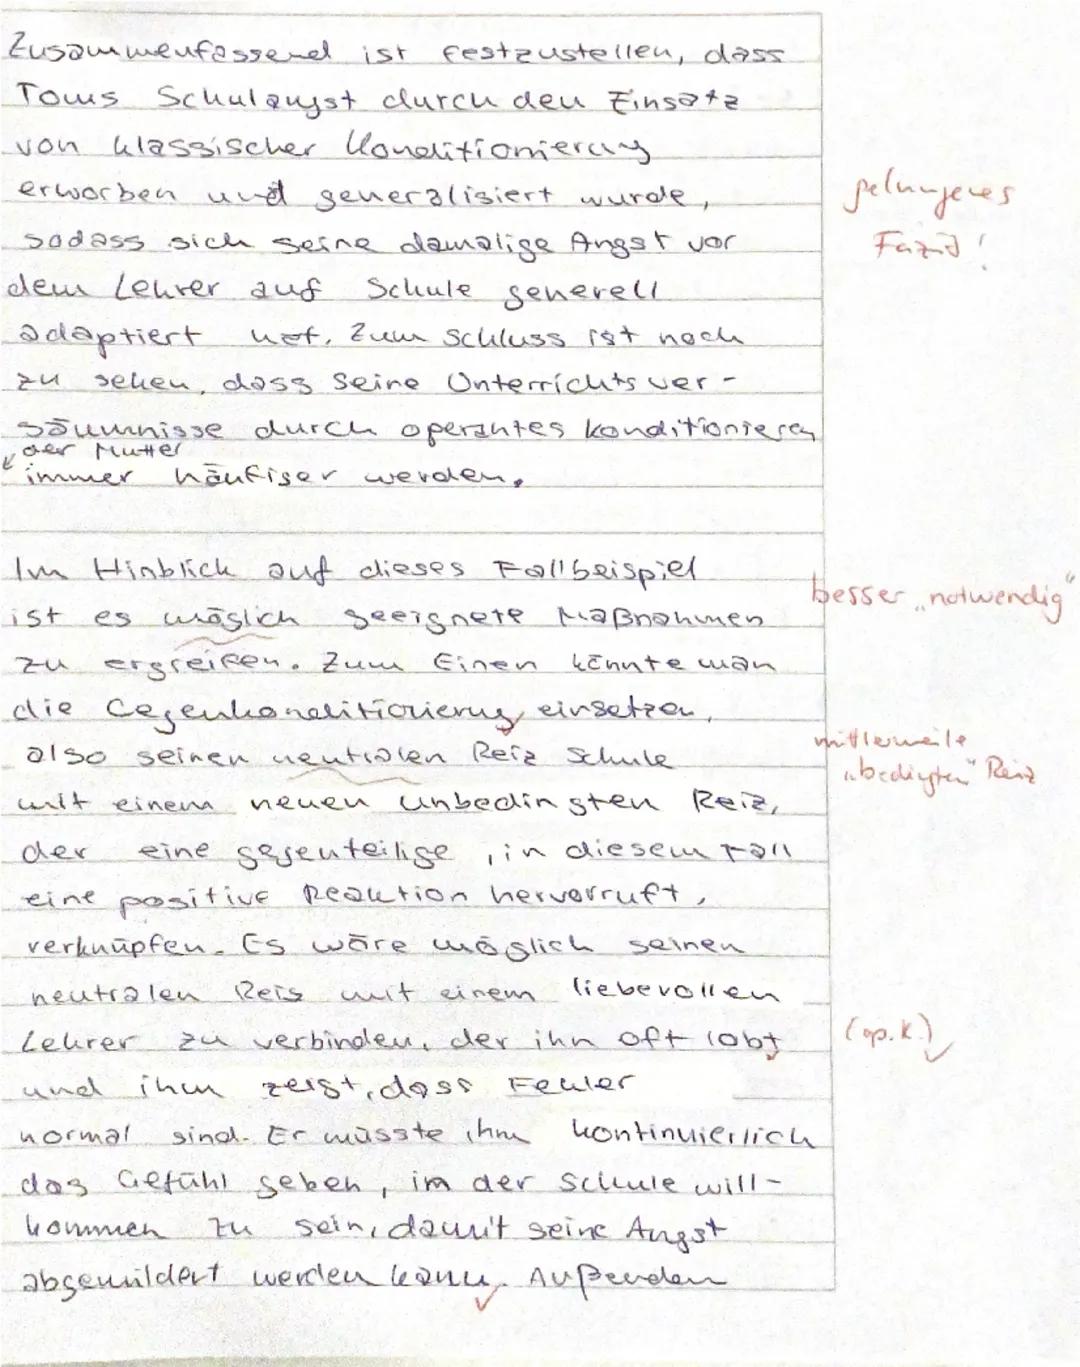 Zusammenfassend ist festzustellen, dass
Toms Schulangst durch den Einsatz
von klassischer Konditionierung
erworben und generalisiert wurde,
sodass sich seine damalige Angst vor
dem Lehrer auf Schule generell
adaptiert hat. Zum Schluss ist noch
zu sehen, dass seine Unterrichtsver-
säumnisse durch operantes konditionieren
der Mutter
immer häufiger werden.
gelungenes
Fazit!
Im Hinblick auf dieses Fallbeispiel
ist es möglich geeignete Maßnahmen
besser "notwendig"
zu ergreifen. Zum Einen könnte man
die Gegenkonditionierung einsetzen,
also seinen neutralen Reiz Schule
mittlerweile
"bedingten" Reiz
mit einem neuen unbedingten Reiz,
der eine gegenteilige, in diesem Fall
eine positive Reaktion hervorruft,
verknüpfen. Es wäre möglich seinen
neutralen Reis mit einem liebevollen
Lehrer zu verbinden, der ihn oft lobt
(op. K.)
und ihm zeigt, dass Fehler
normal sind. Er müsste ihm kontinuierlich
das Gefühl geben, in der Schule will-
kommen zu sein, damit seine Angst
abgemildert werden kann. Außerdem